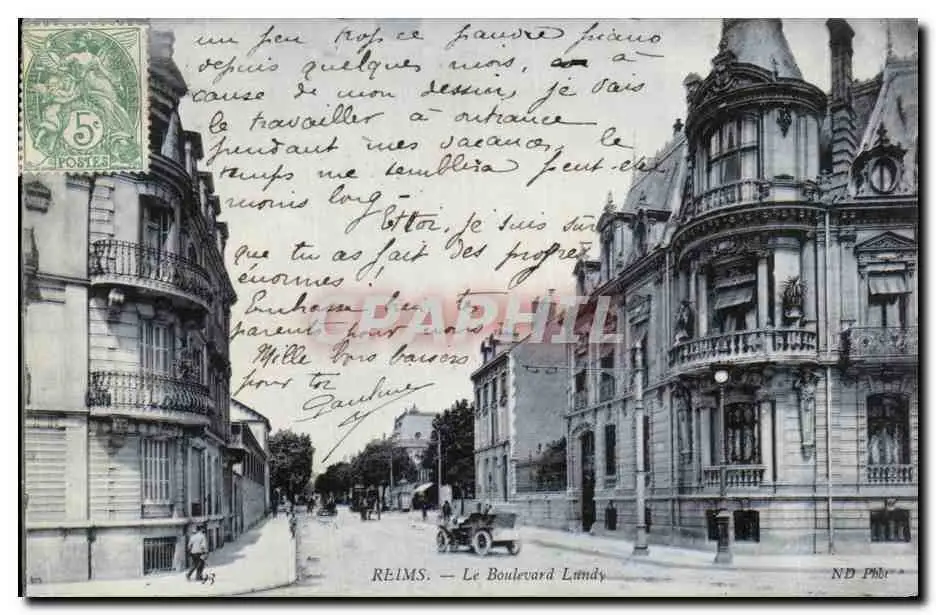 5c
POSTES
un peu trop ce pauvre piano
depuis quelques mois, à
cause de mon dessin, je vais
le travailler à outrance
pendant mes vacances, le
temps me semblera peut-etre
moins long-
Et toi, je suis sûr
que tu as fait des progrès
énormes!
Embrasse bien tes
parents pour moi
Mille bons baisers
pour toi
Pauline
GRAPHIL
REIMS. — Le Boulevard Lundy
ND Phot